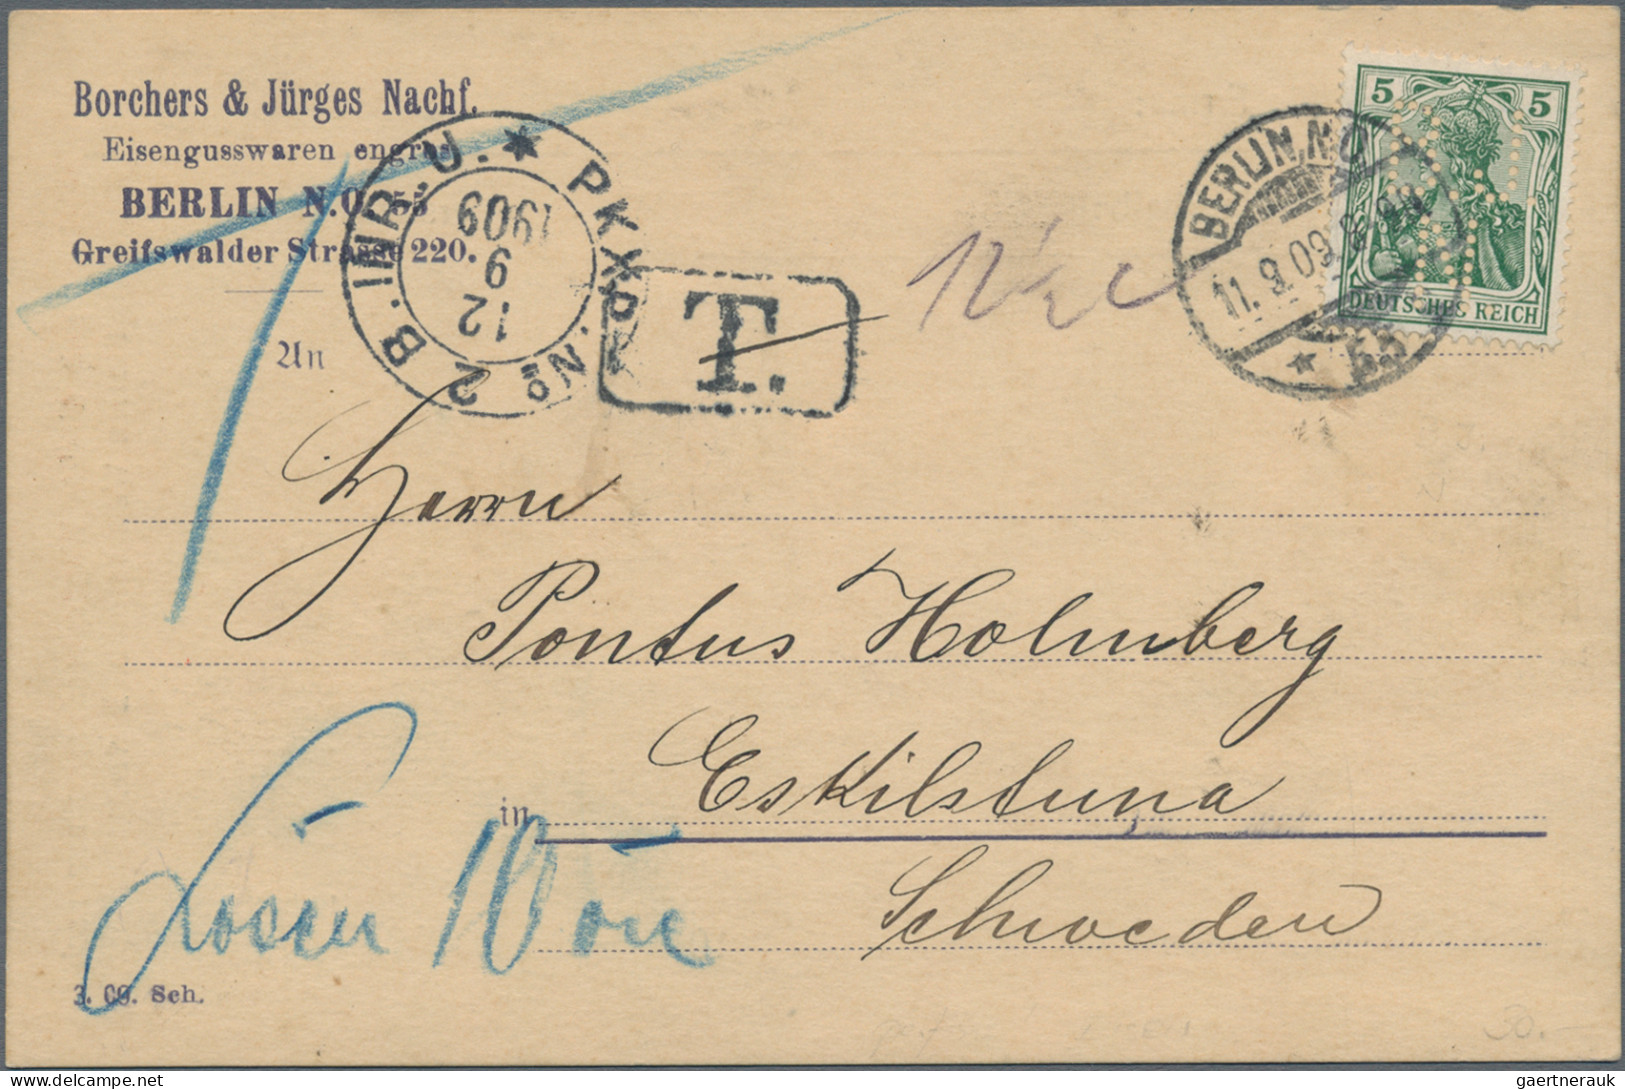 Borchers & Jürges Nachf.
Eisengusswaren engros
BERLIN N.O. 55
Greifswalder Strasse 220.
PKXP. No. 2 B. INR. U.
12
9
1909
T.
12½ c
BERLIN, N.O.
11.9.09.
* 55
5 5
DEUTSCHES REICH
An
Herrn
Pontus Holmberg
in Eskilstuna
Schweden
Lösen 10 öre
3. 09. Sch.
30.-
gaertnerauk